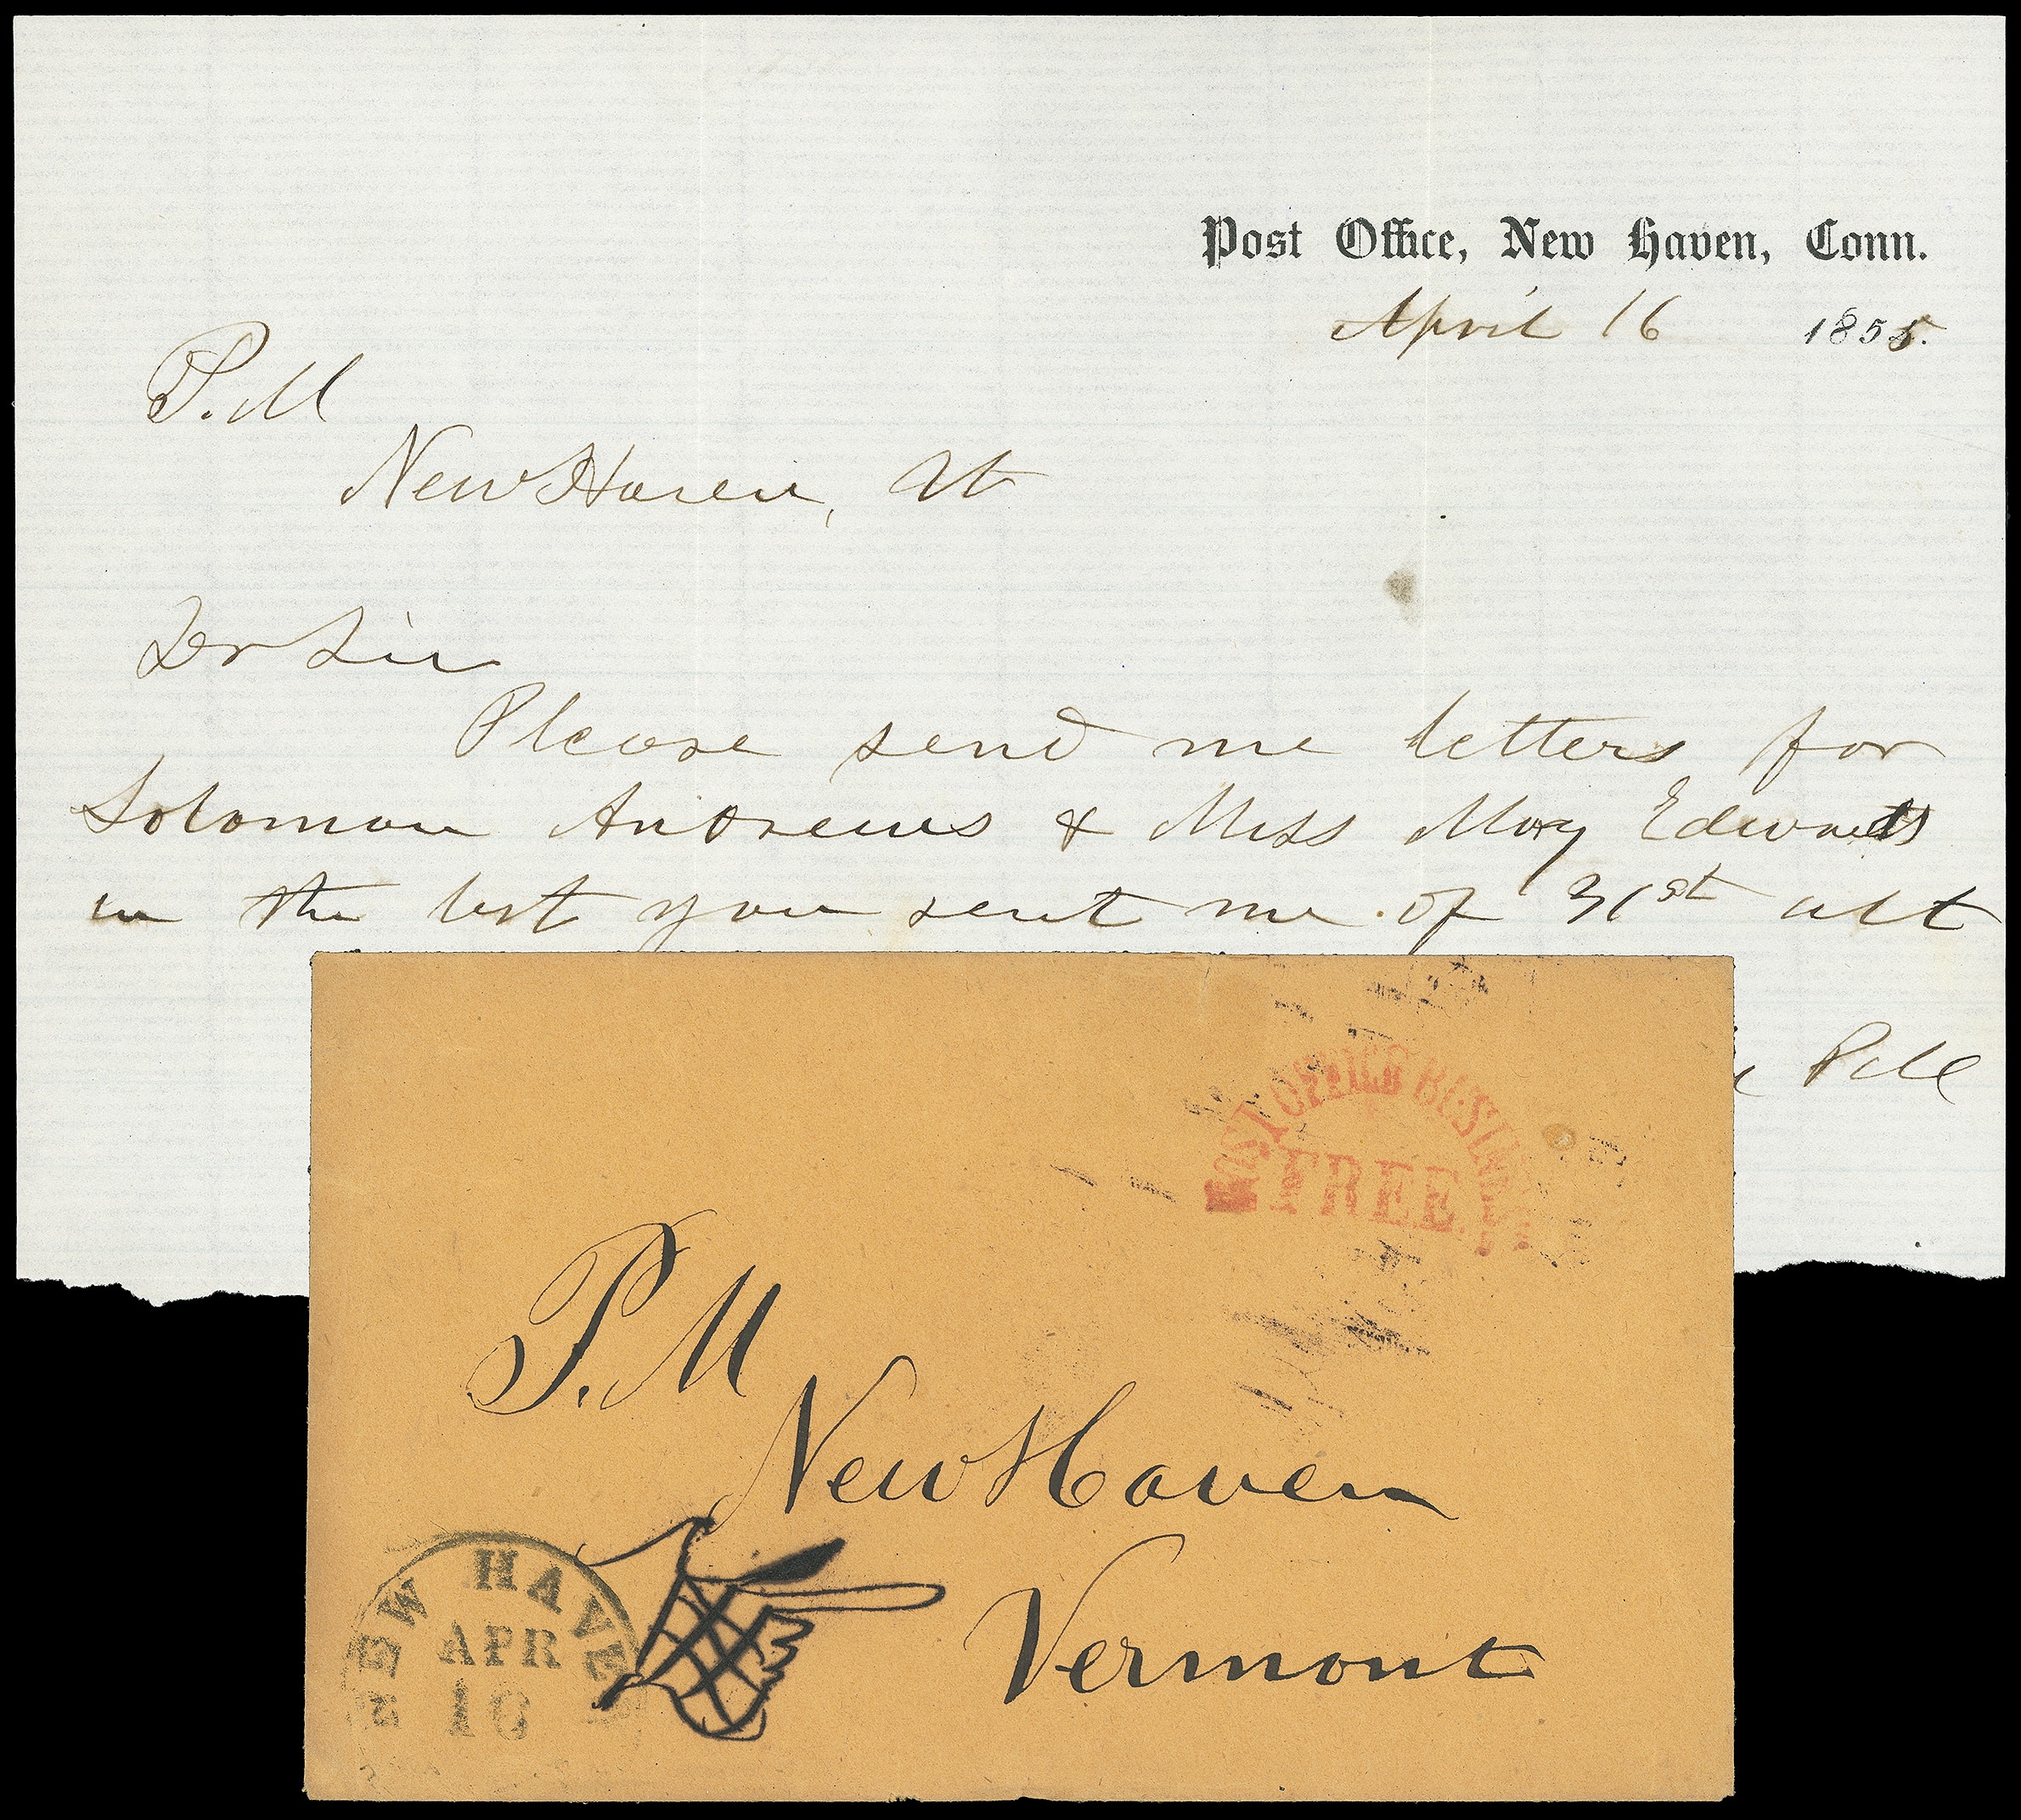 Post Office, New Haven, Conn.
April 16 1855.
P. M
New Haven, Vt
Dr Sir
Please send me letters for
Solomon Andrews & Miss Mary Edwards
in the list you sent me of 31st ult
POST OFFICE BUSINESS
FREE
P. M
New Haven
Vermont
NEW HAVEN
APR
16